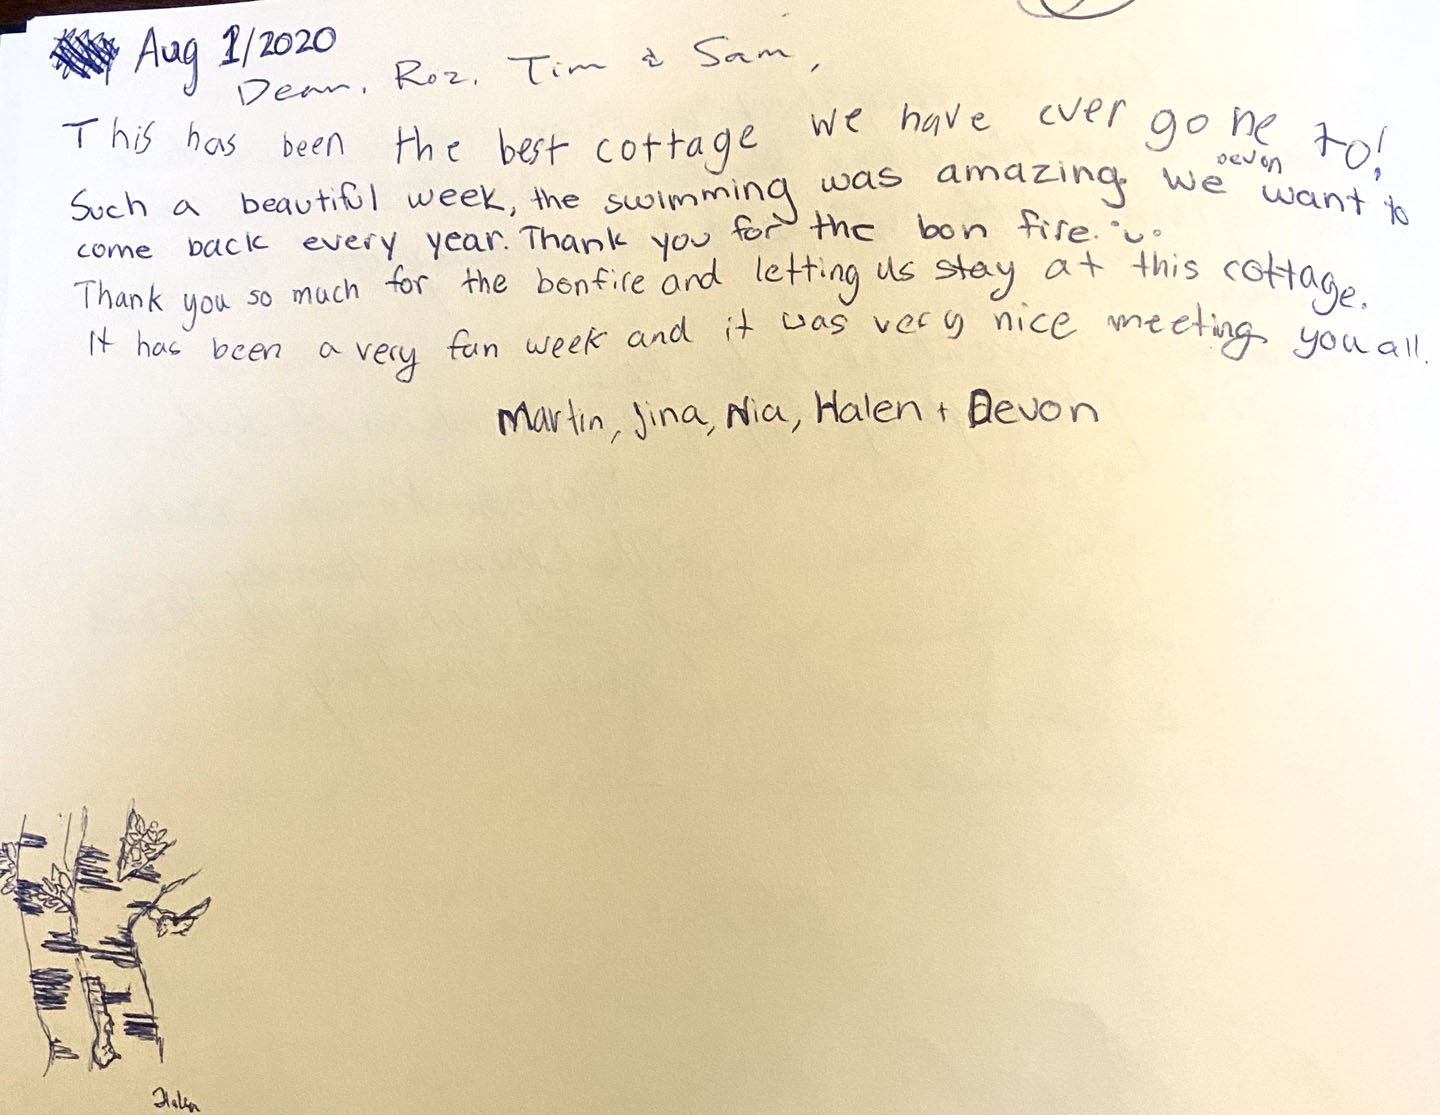 Aug 1/2020
Dean, Roz, Tim & Sam,
This has been the best cottage we have ever gone to!
Devon
Such a beautiful week, the swimming was amazing. We want to
come back every year. Thank you for the bon fire.
Thank you so much for the bonfire and letting us stay at this cottage.
It has been a very fun week and it was very nice meeting you all.
Martin, Jina, Nia, Halen + Devon
Halen